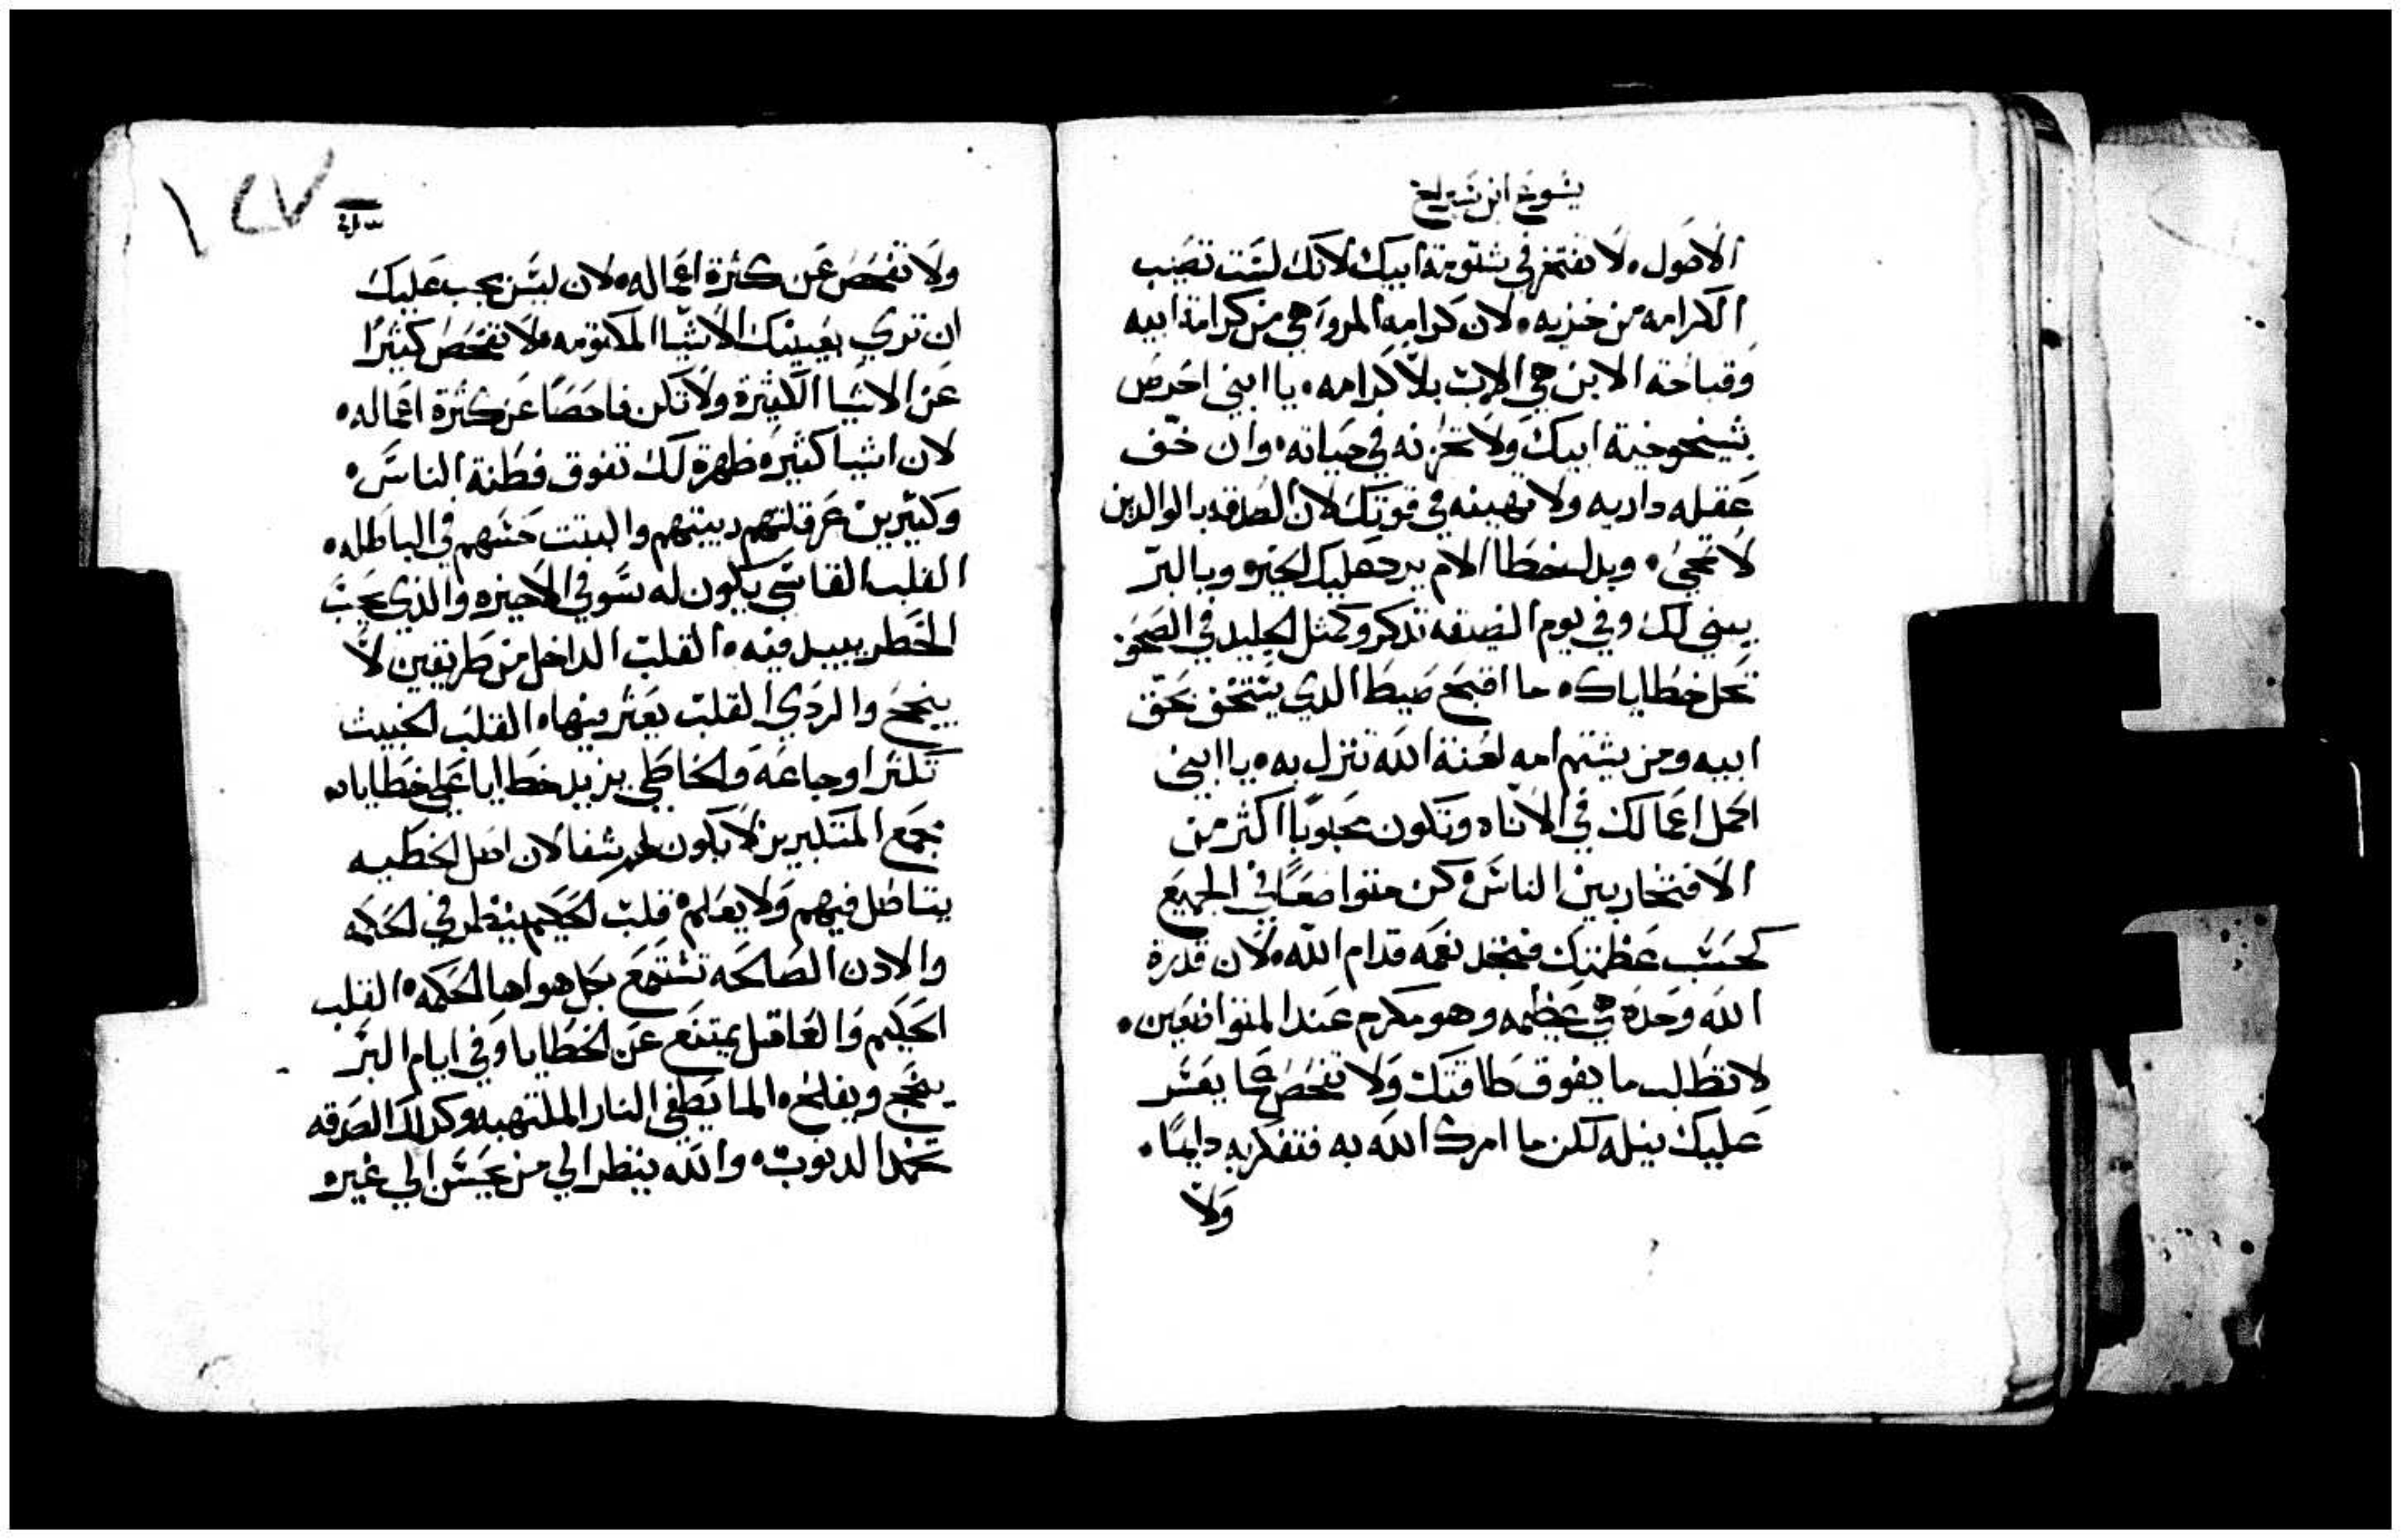 يشوع ابن شيراخ
الاصول ولا تفتخر في شتومة ابيك لانك لست تصيب
الكرامه من خزيه، لان كرامة المرو هي من كرامة ابيه
وقباحة الابن هي الاب بلا كرامه، يا ابني احرص
بشيخوخية ابيك ولا تحزنه في حياته، وان خف
عقله داريه ولا تهينه في قوتك لان الصدقه بالوالدين
لا تمحي، وبدل خطا الام يرد عليك الخير وبالبر
يبني لك وفي يوم الضيقه تذكر وكمثل الجليد في الصحو
تحل خطاياك، ما اقبح صيط الدي يتخفف بحق
ابيه ومن يشتم امه لعنة الله تنزل به، يا ابني
اكمل اعمالك في الاناه وتكون محبوبا اكثر من
الافتخار بين الناس، كن متواضعا في الجميع
كحسب عظمتك فتجد نعمه قدام الله، لان قدرة
الله وحده هي عظيمه وهو مكرم عند المتواضعين،
لا تطلب ما يفوق طاقتك ولا تفحص عما يعسر
عليك نيله لكن ما امرك الله به فتفكر به دايما،
ولا
١٤٧
ولا تفحص عن كثرة اعماله، لان ليس يجب عليك
ان تري بعينيك الاشيا المكتومه، لا تفحص كثيرا
عن الاشيا الكثيرة ولا تكن فاحصا عن كثرة اعماله،
لان اشيا كثيره ظهرة لك تفوق فطنة الناس،
وكثيرين عرقلتهم ديبتهم والبتت حسهم في الباطله،
القلب القاسي يكون له سو في الاخيره والذي يحب
الخطر يبيد فيه، القلب الداخل من طريقين لا
ينجح والردي القلب يعثر فيها، القلب الخبيث
تكثر اوجاعه والخاطي يزيد خطايا علي خطاياه،
مجمع المتكبرين لا يكون لهم شفا لان اصل الخطيه
يتاطل فيهم ولا يعلم، قلب الحكيم ينظر في الحكمه
والادن الصالحه تستمع بكل هواها الحكمه، القلب
الحكيم والعاقل يمتنع عن الخطايا وفي ايام البر
ينجح ويفلح، الما يطفي النار الملتهبه وكدلك الصدقه
تخمد الدنوب، والله ينظر الي من يحسن الي غيره